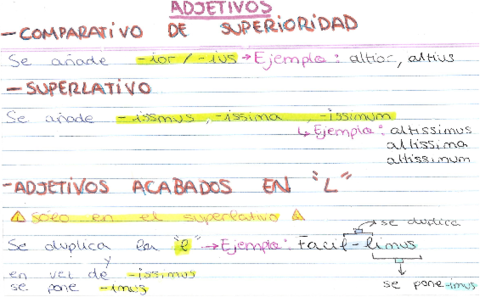 ADJETIVOS
-COMPARATIVO DE SUPERIORIDAD
Se añade -ior / -ius → Ejemplo: altior, altius
-SUPERLATIVO
Se añade -issmus, -issima, -issimum
↳ Ejemplo: altissimus
altissima
altissinum
-ADJETIVOS ACABADOS EN "L"
⚠ Sólo en el superlativo ⚠
se duplica
Se duplica la "l" → Ejemplo: Facil-limus
y
en vez de -issimus
se pone -imus
se pone -imus